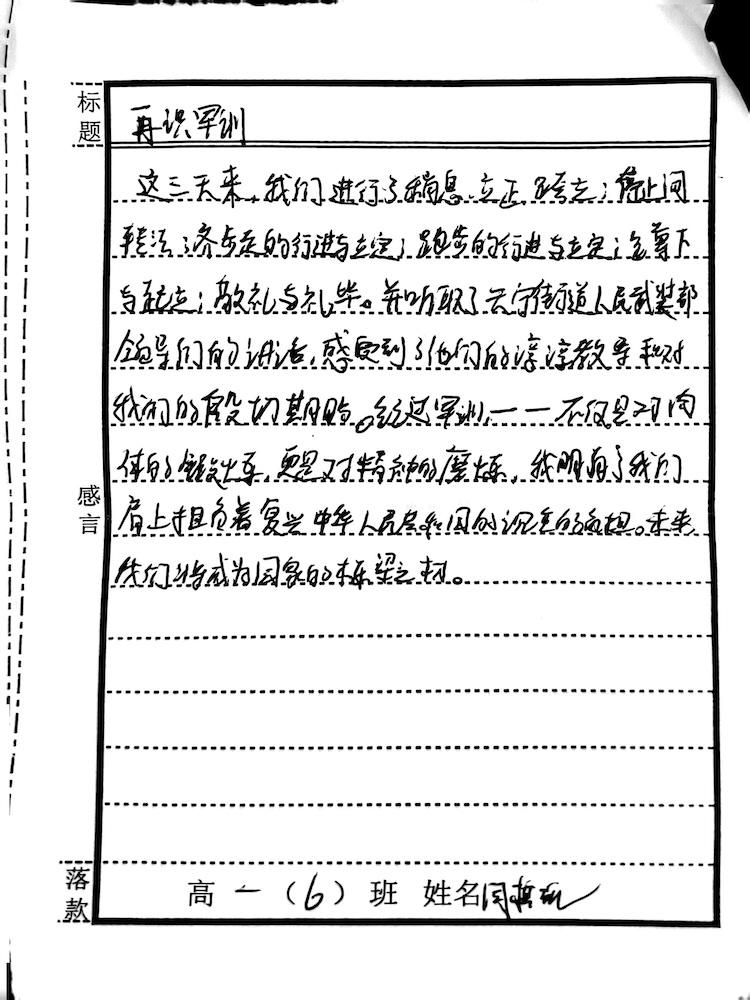 标题
再识军训
这三天来，我们进行了稍息、立正、跨立；停止间
转法；齐步走的行进与立定；跑步的行进与立定；蹲下
与起立；敬礼与礼毕。并听取了天宁街道人民武装部
领导们的讲话，感受到了他们的谆谆教导和对
我们的殷切期盼。经过军训，——不仅是对肉
体的锻炼，更是对精神的磨炼，我明白了我们
肩上担负着复兴中华人民共和国的沉重的负担。未来
我们将成为国家的栋梁之材。
感言
落款
高一（6）班 姓名